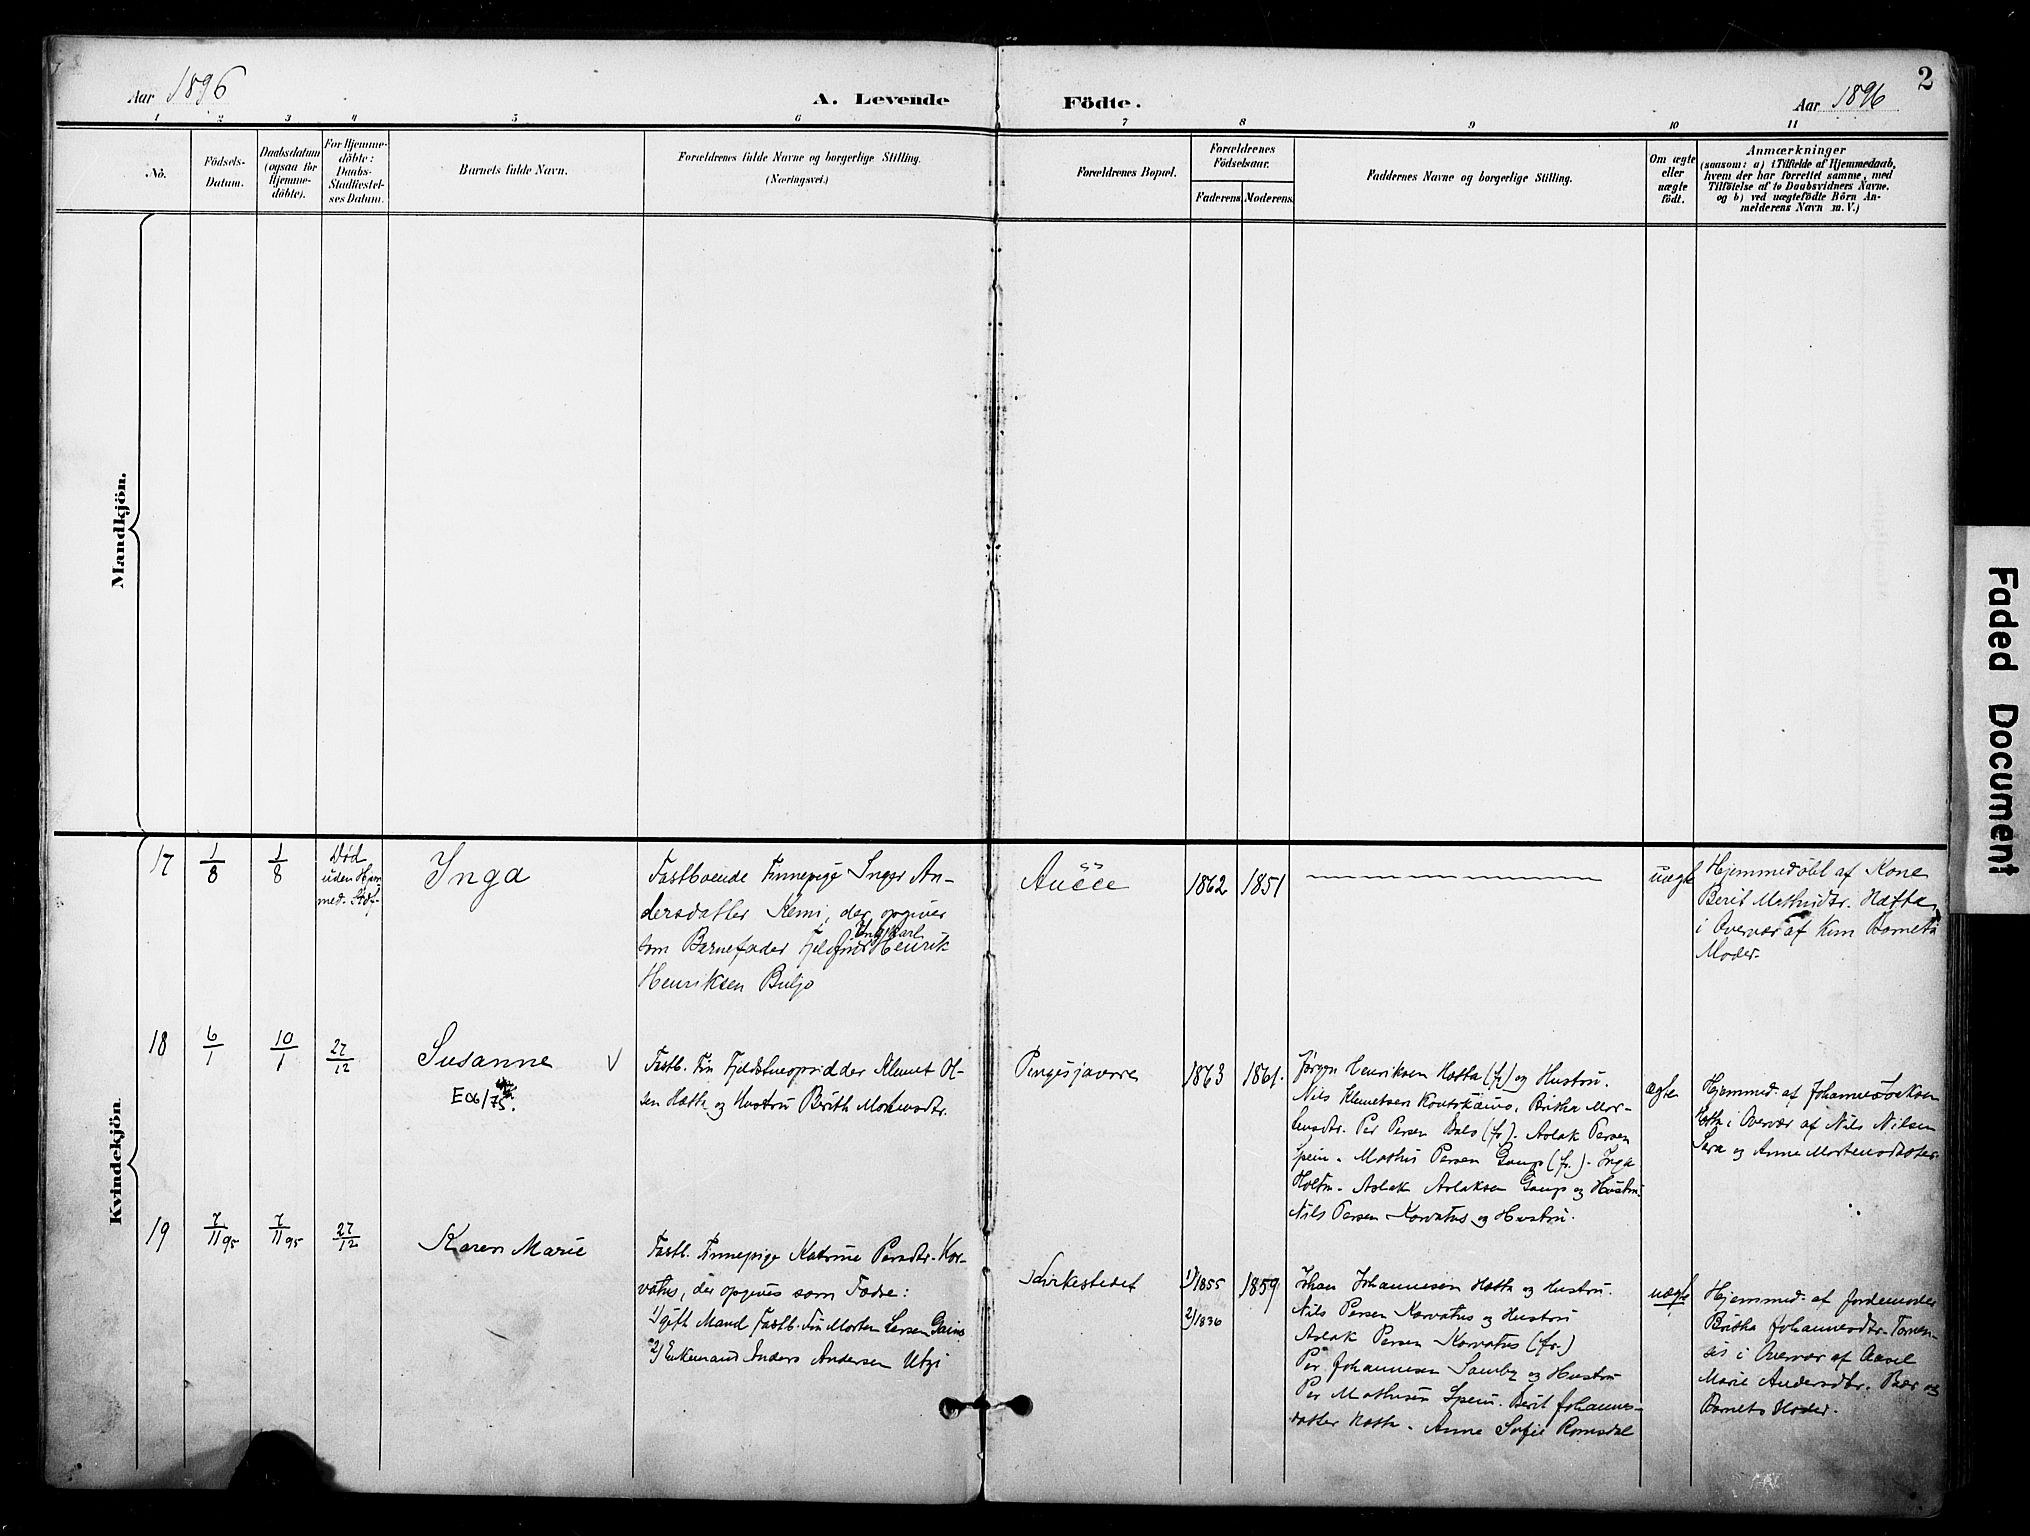 Aar 1896
A. Levende
Födte.
Aar 1896
2
1 2 3 4 5 6 7 8 9 10 11
No.
Födsels-
Datum.
Daabsdatum
(ogsaa for
Hjemme-
döbte).
For Hjemme-
döbte:
Daabs-
Stadfæstel-
ses Datum.
Barnets fulde Navn.
Forældrenes fulde Navne og borgerlige Stilling.
(Næringsvei.)
Forældrenes Bopæl.
Forældrenes
Födselsaar.
Faderens. Moderens.
Faddernes Navne og borgerlige Stilling.
Om ægte
eller
uægte
födt.
Anmærkninger
(saasom: a) i Tilfælde af Hjemmedaab,
hvem der har forrettet samme, med
Tilföielse af to Daabsvidners Navne.
og b) ved uægtefödte Börn An-
melderens Navn m. V.)
Mandkjön.
Kvindekjön.
17
1/8
1/8
Død
uden Hjem
med. Stdf.
Inga
Fastboende Finnepige Inger An-
dersdatter Kemi, der opgiver
Ungkarl
som Barnefader Fjeldfin Henrik
Henriksen Buljo
Aučče
1862
1851
uægte
Hjemmedöbt af Kone
Berit Mathisdtr. Hætta
i Overvær af Kun Barnets
Moder.
18
6/1
10/1
27/12
Susanne V
E06/75.
Fastb. Fin Fjeldstueopsidder Klemet Ol-
sen Hætta og Hustru Berith Mortensdtr.
Pingisjavrre
1863
1861.
Jørgen Henriksen Hætta (fr) og Hustru.
Nils Klemetsen Koutokæino. Britha Mor-
tensdtr. Per Persen Bals (fr). Aslak Persen
Spein. Mathis Persen Gaup (fr.). Inga
Holtm. Aslak Aslaksen Gaup og Hustru.
Nils Persen Korvatus og Hustru.
ægte
Hjemmed. af Johannes Isaksen
Hætta i Overvær af Nils Nilsen
Sara og Anne Mortensdatter.
19
7/11 95
7/11 95
27/12
Karen Marie
Fastb. Finnepige Katrine Persdtr. Kor-
vatus, der opgives som Fadre:
1) gift Mand Fastb. Fin Morten Larsen Gaino
2) Enkemand Anders Andersen Utzi
Kirkestedet
1) 1855
2) 1836
1859
Johan Johannesen Hætta og Hustru.
Nils Persen Korvatus og Hustru
Aslak Persen Korvatus (fr.)
Per Johannesen Samby og Hustru
Per Mathisen Spein. Berit Johannes-
datter Hætta. Anne Sofie Romsdal
uægte
Hjemmed. af Jordemoder
Britha Johannesdtr. Tornen-
sis i Overvær af Axel
Marie Andersdtr. Bær og
Barnets Moder.
Faded Document